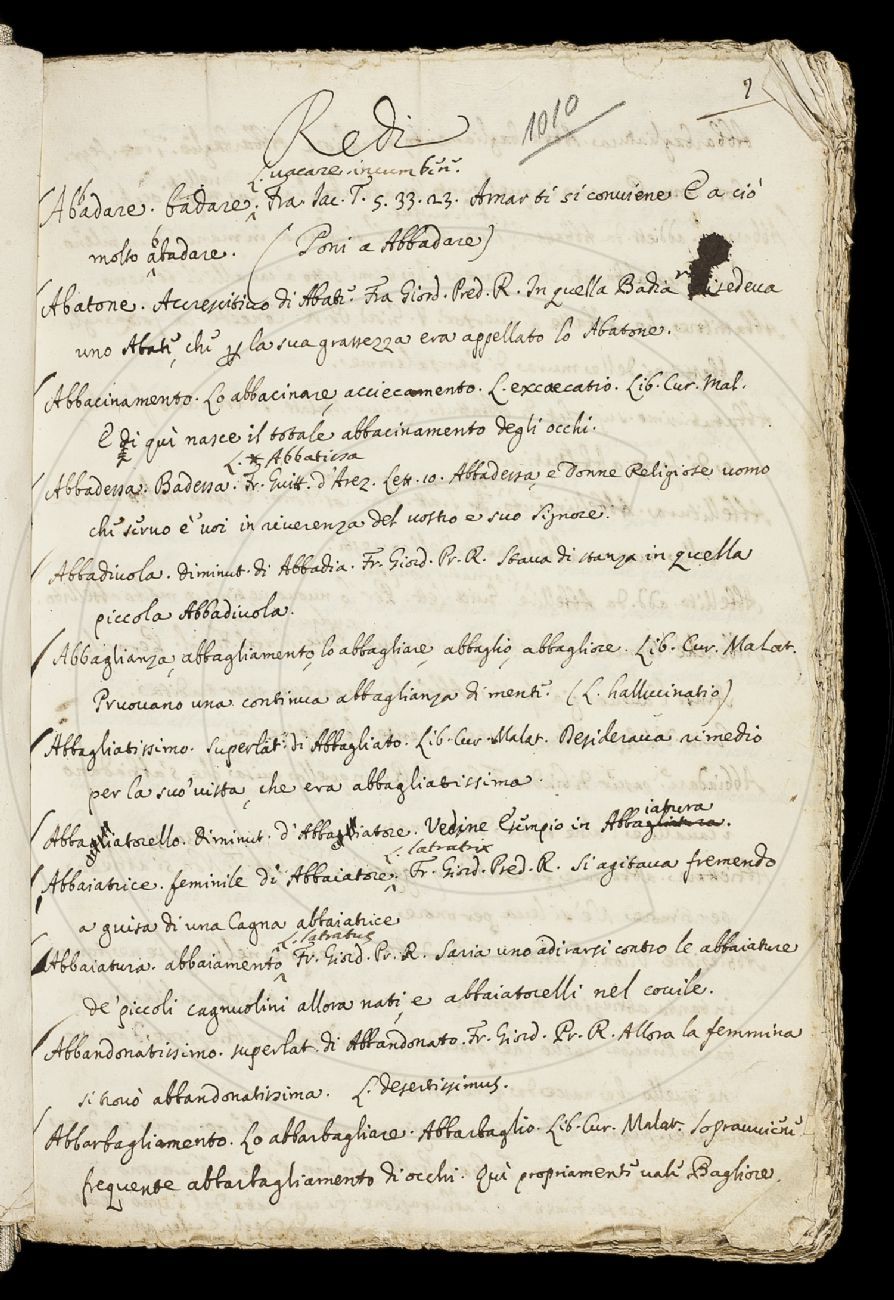 1
1010
Redi
L. vacare incumbere.
Abbadare. badare. Fra Iac. T. 5. 33. 23. Amar ti si conviene E a ciò
molto abbadare. (Poni a Abbadare)
Abatone. Accrescitivo di Abate. Fra Giord. Pred. R. In quella Badia vi risedeva
uno Abate, che per la sua grassezza era appellato lo Abatone.
Abbacinamento. Lo abbacinare, acciecamento. L. excæcatio. Lib. Cur. Mal.
E di quì nasce il totale abbacinamento degli occhi.
L. Abbatissa
Abbadessa. Badessa. Fr. Guitt. d'Arez. Lett. 10. Abbadessa, e Donne Religiose uomo
che servo è voi in riverenza del vostro e suo Signore.
Abbadiuola. diminut. di Abbadia. Fr. Giord. Pr. R. Stava di stanza in quella
piccola Abbadiuola.
Abbaglianza, abbagliamento, lo abbagliare, abbaglio, abbagliore. Lib. Cur. Malat.
Pruovano una continua abbaglianza di mente. (L. hallucinatio)
Abbagliatissimo. Superlat. di Abbagliato. Lib. Cur. Malat. Desiderava rimedio
per la suo' vista, che era abbagliatissima.
iatura
Abbaiatorello. diminut. d'Abbaiatore. Vedine Esempio in Abbagliatura.
L. latratrix
Abbaiatrice. feminile di Abbaiatore. Fr. Giord. Pred. R. Si agitava fremendo
a guisa di una Cagna abbaiatrice
L. latratus
Abbaiatura. abbaiamento Fr. Giord. Pr. R. Saria uno adirarsi contro le abbaiature
de' piccoli cagnuolini allora nati, e abbaiatorelli nel covile.
Abbandonatissimo. superlat. di Abbandonato. Fr. Giord. Pr. R. Allora la femmina
si trovò abbandonatissima. L. desertissimus.
Abbarbagliamento. Lo abbarbagliare. Abbarbaglio. Lib. Cur. Malat. Sopravviene
frequente abbarbagliamento di occhi. Quì propriamente vale Bagliore.